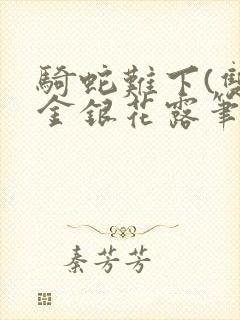 騎蛇難下(雙
金銀花露筆
秦芳芳